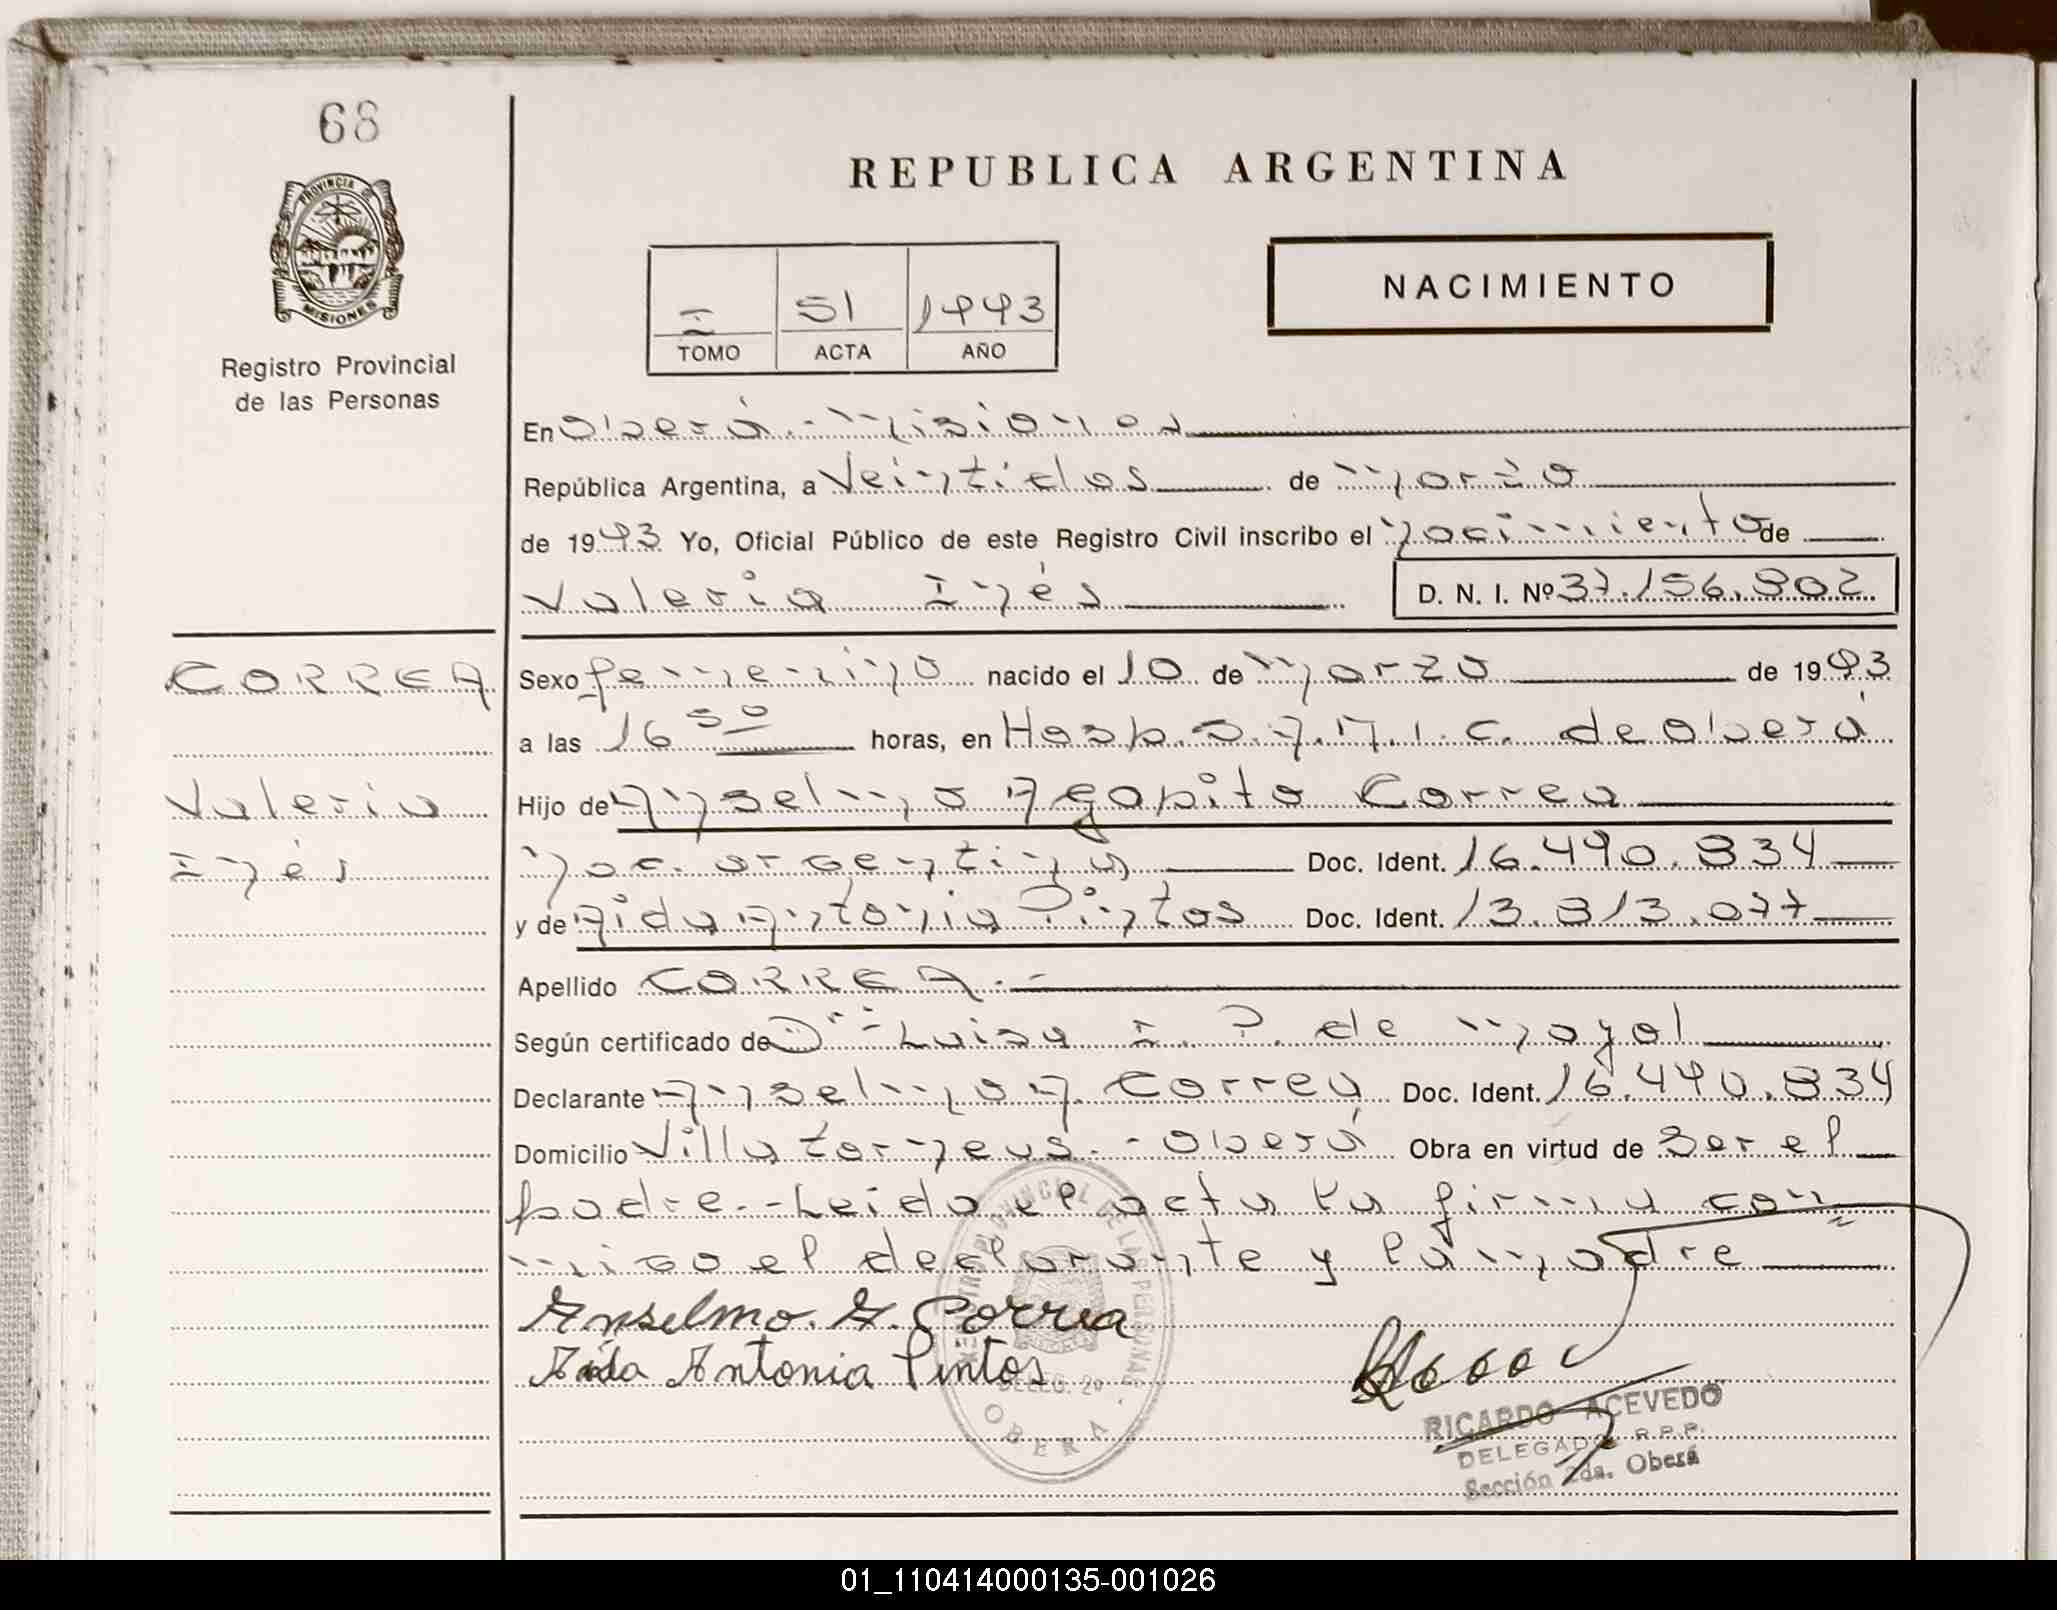 68
REPUBLICA ARGENTINA
PROVINCIA DE
MISIONES
Registro Provincial
de las Personas
NACIMIENTO
I 51 1993
TOMO ACTA AÑO
En Oberá - Misiones
República Argentina, a Veintidos de marzo
de 1993 Yo, Oficial Público de este Registro Civil inscribo el nacimiento de
Valeria Inés D. N. I. Nº 37.156.802
CORREA
Valeria
Inés
Sexo femenino nacido el 10 de marzo de 1993
a las 16 30 horas, en Hosp. S.A.M.I.C. de Oberá
Hijo de Anselmo Agapito Correa
nac. argentina Doc. Ident. 16.490.834
y de Aida Antonia Pintos Doc. Ident. 13.813.077
Apellido CORREA.-
Según certificado de Dra Luisa I. P. de Mayol
Declarante Anselmo A. Correa Doc. Ident. 16.490.834
Domicilio Villa Torneus - Oberá Obra en virtud de ser el
padre.- Leida el acta la firma con
migo el declarante y la madre
Anselmo. A. Correa
Aida Antonia Pintos
REGISTRO PROVINCIAL DE LAS PERSONAS
DELEG. 2º
OBERA
RICARDO ACEVEDO
DELEGADO R.P.P.
Sección 2da. Oberá
01_110414000135-001026